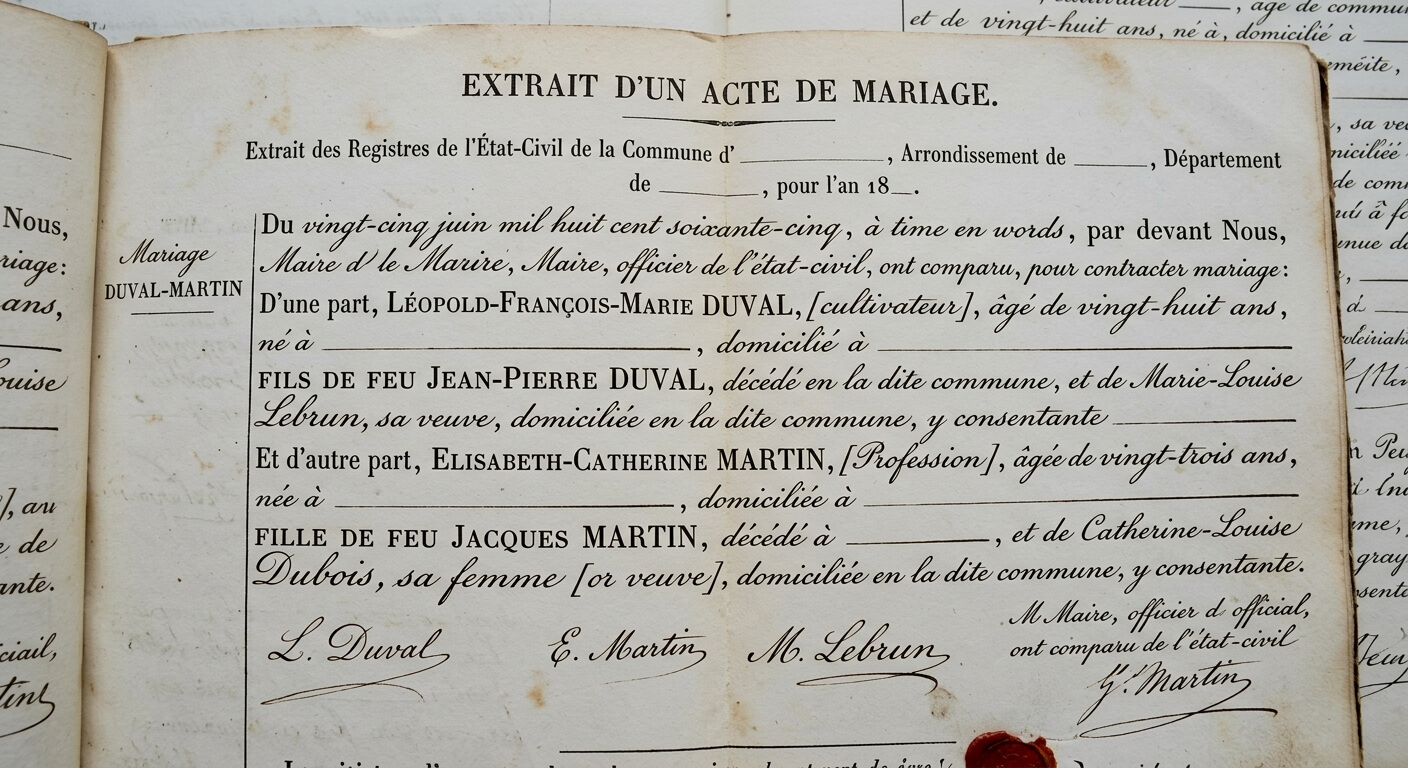 EXTRAIT D'UN ACTE DE MARIAGE.
Extrait des Registres de l'État-Civil de la Commune d' , Arrondissement de , Département
de , pour l'an 18 .
Mariage
DUVAL-MARTIN
Du vingt-cinq juin mil huit cent soixante-cinq, à time en words, par devant Nous,
Maire d' le Marire, Maire, officier de l'état-civil, ont comparu, pour contracter mariage:
D'une part, LÉOPOLD-FRANÇOIS-MARIE DUVAL, [cultivateur], âgé de vingt-huit ans,
né à , domicilié à
FILS DE FEU JEAN-PIERRE DUVAL, décédé en la dite commune, et de Marie-Louise
Lebrun, sa veuve, domiciliée en la dite commune, y consentante
Et d'autre part, ELISABETH-CATHERINE MARTIN, [Profession], âgée de vingt-trois ans,
née à , domiciliée à
FILLE DE FEU JACQUES MARTIN, décédé à , et de Catherine-Louise
Dubois, sa femme [or veuve], domiciliée en la dite commune, y consentante.
M Maire, officier d official,
ont comparu de l'état-civil
L. Duval E. Martin M. Lebrun
Martin
Nous,
riage:
ans,
ouise
], au
e de
ante.
ciail,
tint
, âge de commu
et de vingt-huit ans, né à, domicilié à
eméite,
, sa veu
niciliéé
de comm